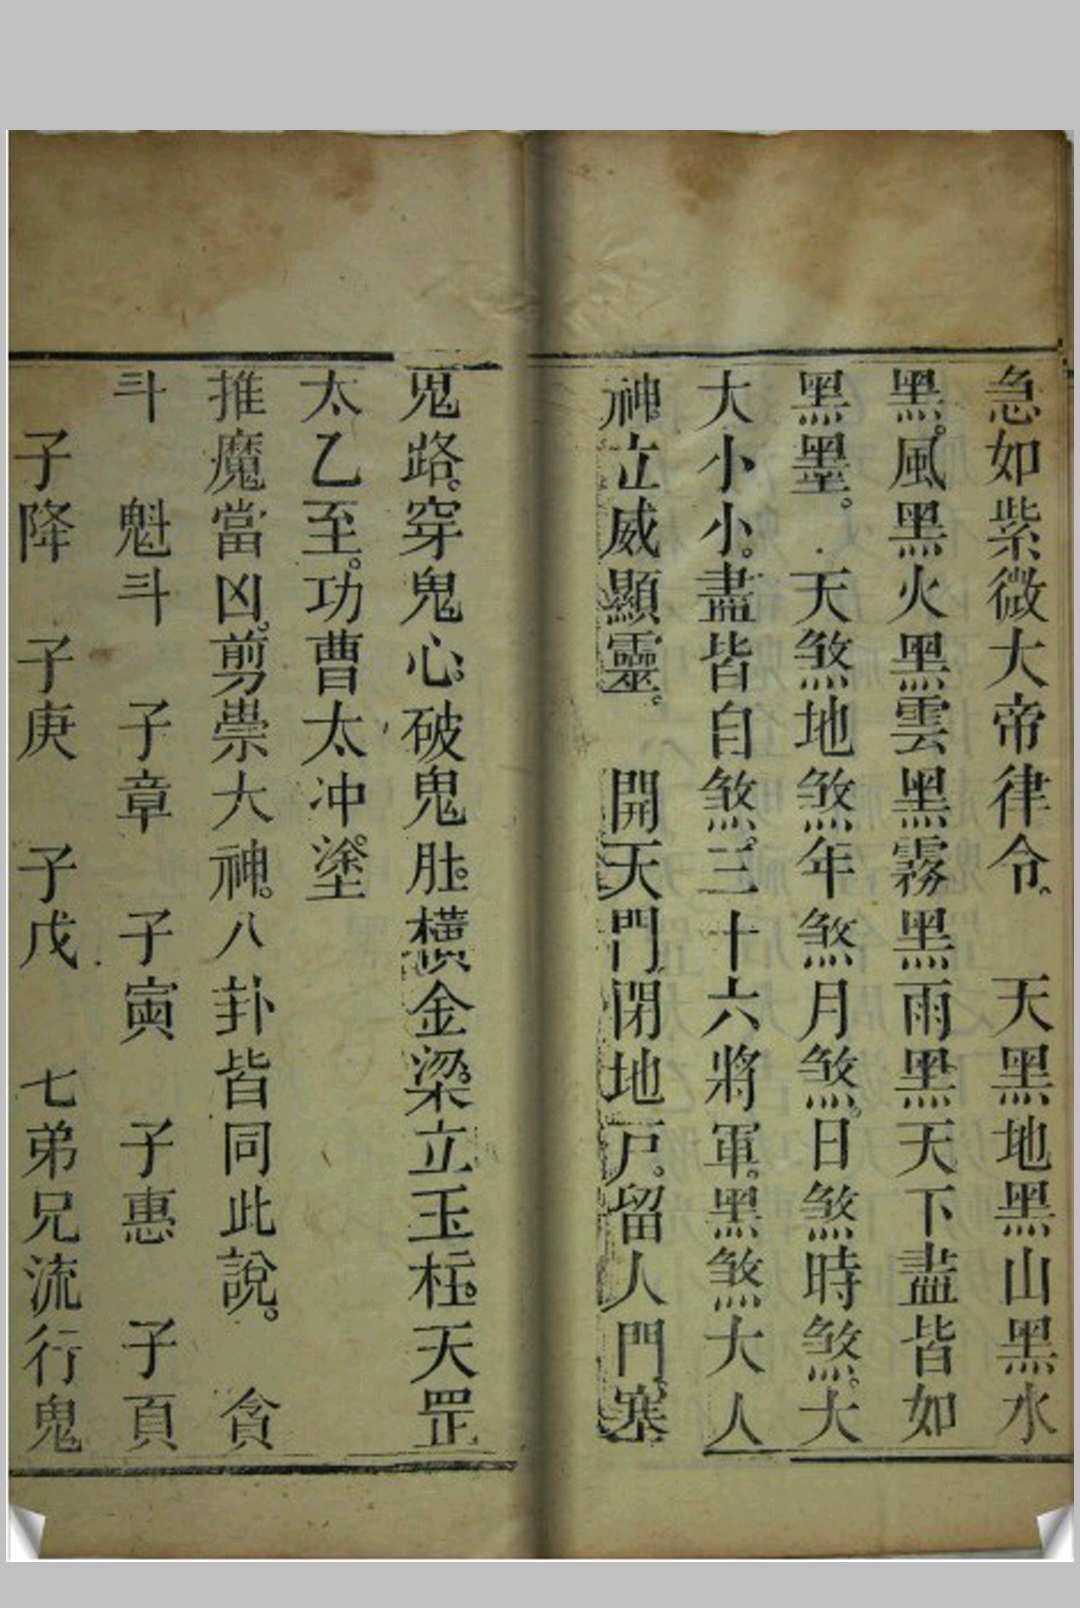 急如紫微大帝律令。　天黑地黑山黑水
黑。風黑火黑雲黑霧黑雨黑天下盡皆如
黑墨。　天煞地煞年煞月煞。日煞時煞。大
大小小。盡皆自煞。三十六將軍。黑煞大人
神。立威顯靈。　開天門閉地戸。留人門。塞
鬼路。穿鬼心。破鬼肚。橫金梁。立玉柱。天罡
太乙至。功曹太冲。塗
推魔當凶。剪祟大神。八卦皆同此說。　貪
斗　魁斗　子章　子寅　子惠　子頁
子降　子庚　子戊　七弟兄流行鬼